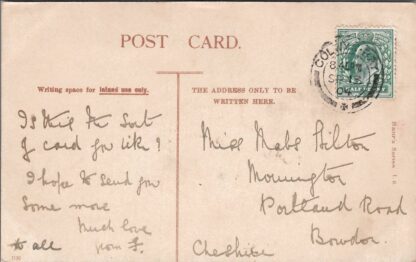 POST CARD.
Writing space for inland use only.
THE ADDRESS ONLY TO BE
WRITTEN HERE.
HALFPENNY
Is this the sort
of card you like?
I hope to send you
some more
Much love
to all from F.
Miss Mabs Hilton
Mornington
Portland Road
Bowdon.
Cheshire